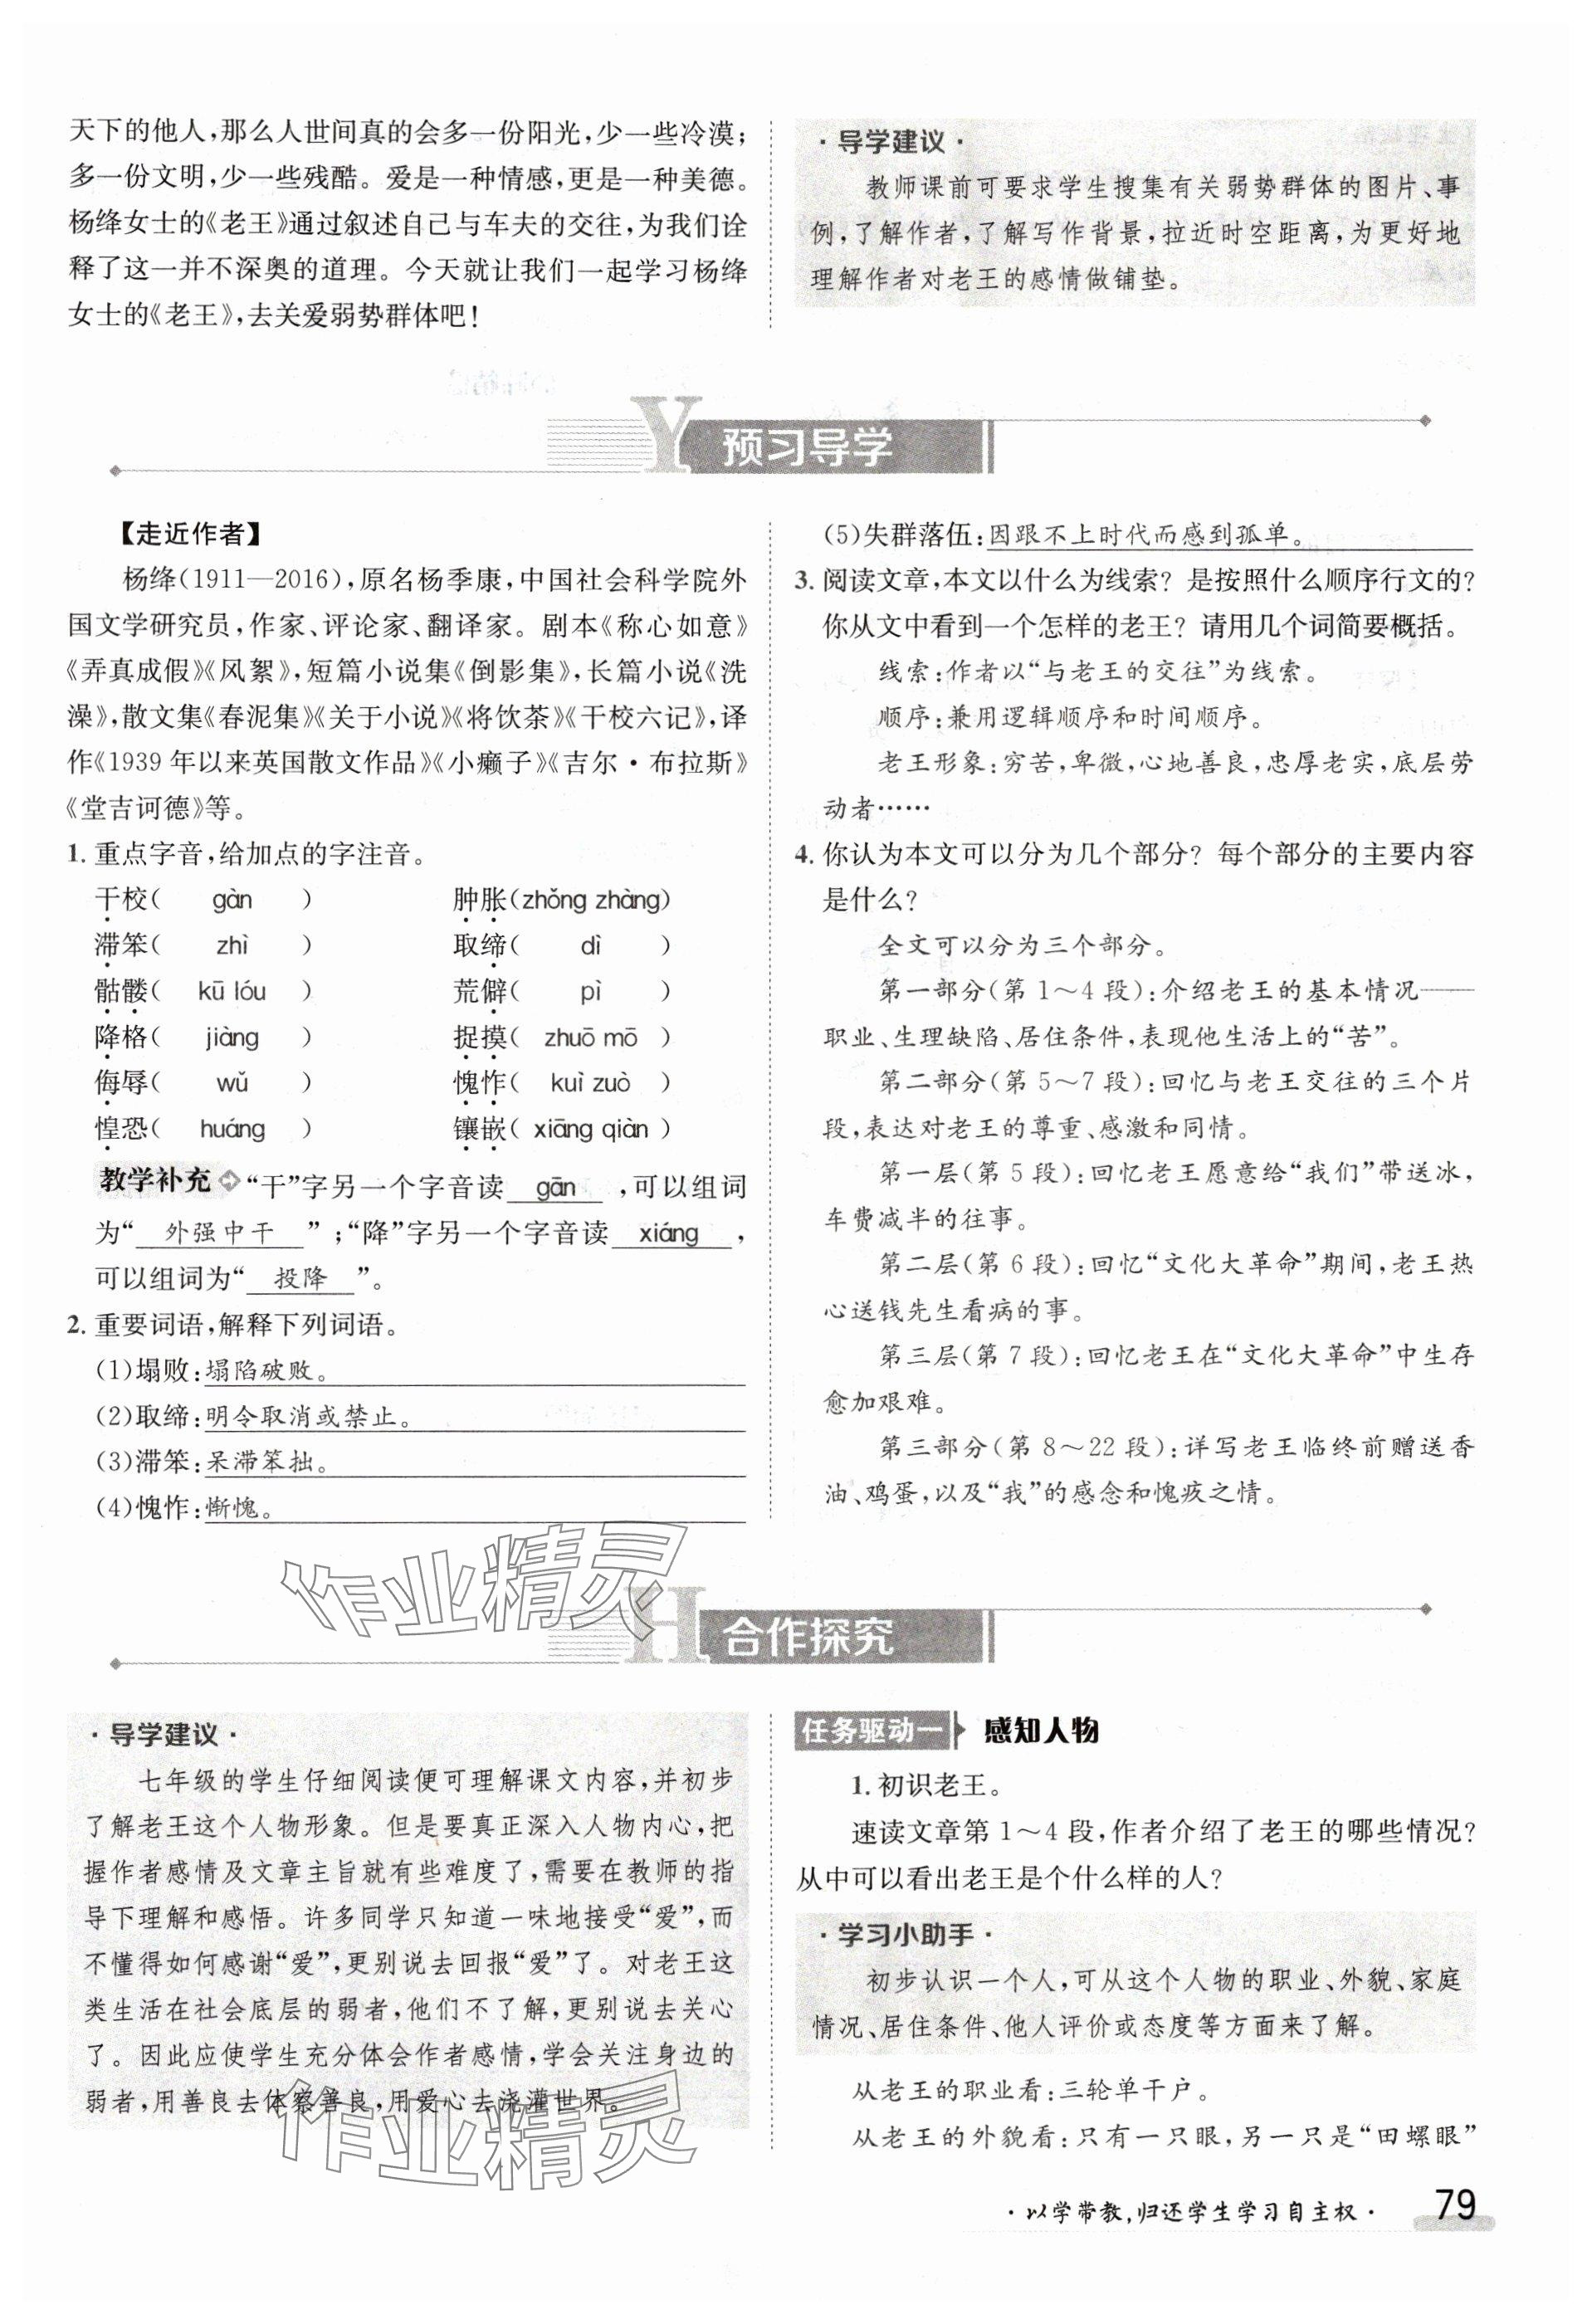 天下的他人，那么人世间真的会多一份阳光，少一些冷漠；
多一份文明，少一些残酷。爱是一种情感，更是一种美德。
杨绛女士的《老王》通过叙述自己与车夫的交往，为我们诠
释了这一并不深奥的道理。今天就让我们一起学习杨绛
女士的《老王》，去关爱弱势群体吧！
·导学建议·
教师课前可要求学生搜集有关弱势群体的图片、事
例，了解作者，了解写作背景，拉近时空距离，为更好地
理解作者对老王的感情做铺垫。
Y 预习导学
【走近作者】
杨绛（1911—2016），原名杨季康，中国社会科学院外
国文学研究员，作家、评论家、翻译家。剧本《称心如意》
《弄真成假》《风絮》，短篇小说集《倒影集》，长篇小说《洗
澡》，散文集《春泥集》《关于小说》《将饮茶》《干校六记》，译
作《1939年以来英国散文作品》《小癞子》《吉尔·布拉斯》
《堂吉诃德》等。
1. 重点字音，给加点的字注音。
干校( gàn ) 肿胀(zhǒng zhàng)
滞笨( zhì ) 取缔( dì )
骷髅( kū lóu ) 荒僻( pì )
降格( jiàng ) 捉摸( zhuō mō )
侮辱( wǔ ) 愧怍( kuì zuò )
惶恐( huáng ) 镶嵌( xiāng qiàn )
教学补充 “干”字另一个字音读 gān ，可以组词
为“ 外强中干 ”；“降”字另一个字音读 xiáng ，
可以组词为“ 投降 ”。
2. 重要词语，解释下列词语。
(1)塌败：塌陷破败。
(2)取缔：明令取消或禁止。
(3)滞笨：呆滞笨拙。
(4)愧怍：惭愧。
(5)失群落伍：因跟不上时代而感到孤单。
3. 阅读文章，本文以什么为线索？是按照什么顺序行文的？
你从文中看到一个怎样的老王？请用几个词简要概括。
线索：作者以“与老王的交往”为线索。
顺序：兼用逻辑顺序和时间顺序。
老王形象：穷苦，卑微，心地善良，忠厚老实，底层劳
动者……
4. 你认为本文可以分为几个部分？每个部分的主要内容
是什么？
全文可以分为三个部分。
第一部分（第1～4段）：介绍老王的基本情况——
职业、生理缺陷、居住条件，表现他生活上的“苦”。
第二部分（第5～7段）：回忆与老王交往的三个片
段，表达对老王的尊重、感激和同情。
第一层（第5段）：回忆老王愿意给“我们”带送冰，
车费减半的往事。
第二层（第6段）：回忆“文化大革命”期间，老王热
心送钱先生看病的事。
第三层（第7段）：回忆老王在“文化大革命”中生存
愈加艰难。
第三部分（第8～22段）：详写老王临终前赠送香
油、鸡蛋，以及“我”的感念和愧疚之情。
作业精灵
H 合作探究
·导学建议·
七年级的学生仔细阅读便可理解课文内容，并初步
了解老王这个人物形象。但是要真正深入人物内心，把
握作者感情及文章主旨就有些难度了，需要在教师的指
导下理解和感悟。许多同学只知道一味地接受“爱”，而
不懂得如何感谢“爱”，更别说去回报“爱”了。对老王这
类生活在社会底层的弱者，他们不了解，更别说去关心
了。因此应使学生充分体会作者感情，学会关注身边的
弱者，用善良去体察善良，用爱心去浇灌世界。
作业精灵
任务驱动一 感知人物
1. 初识老王。
速读文章第1～4段，作者介绍了老王的哪些情况？
从中可以看出老王是个什么样的人？
·学习小助手·
初步认识一个人，可从这个人物的职业、外貌、家庭
情况、居住条件、他人评价或态度等方面来了解。
从老王的职业看：三轮单干户。
从老王的外貌看：只有一只眼，另一只是“田螺眼”
·以学带教，归还学生学习自主权· 79